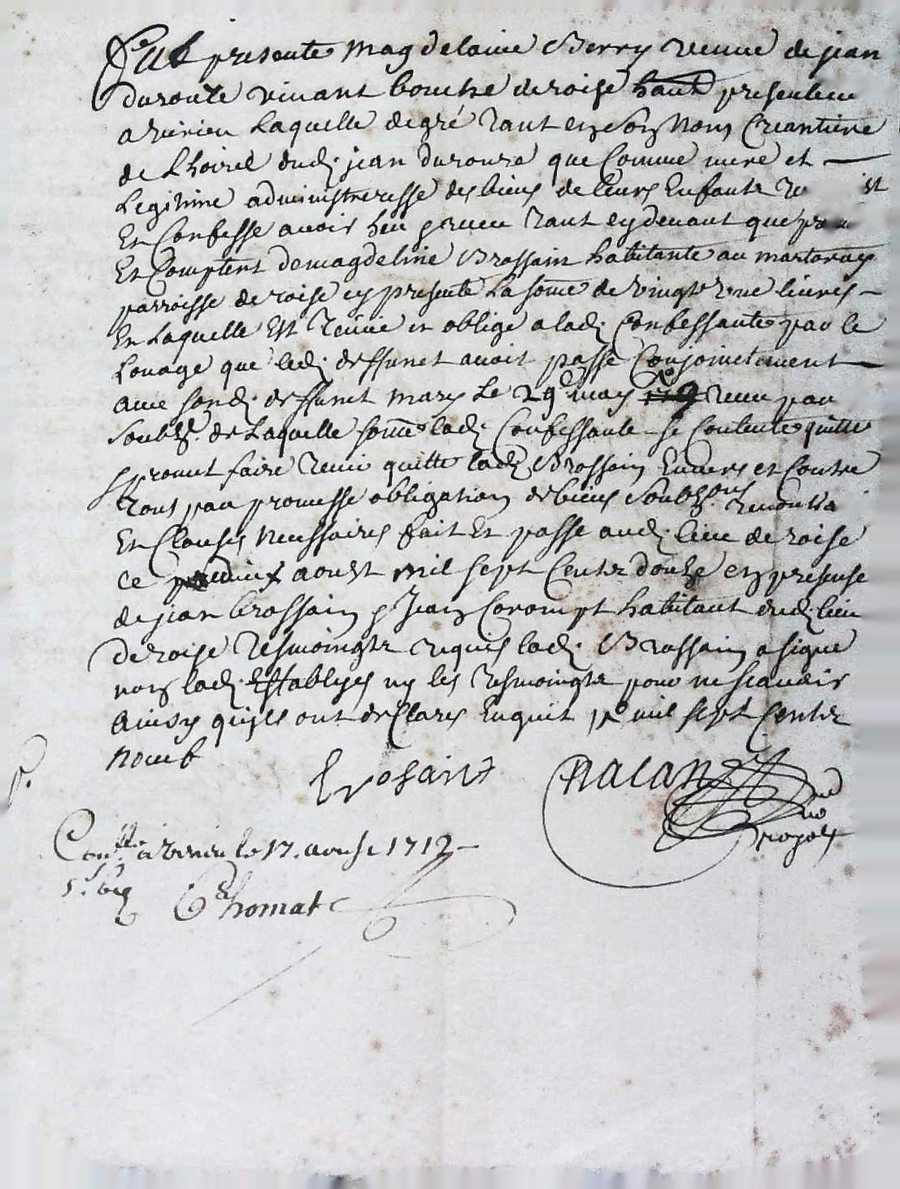 Fut presente Magdelaine Berry veuve de jean
duroure vivant bouche de roise presentem
a virieu Laquelle de gré tant en son Nom Creantiere
de L'hoirel dud. jean duroure que Comme mere et
Legitime administreresse des biens de leurs Enfants
Et Confesse avoir heu receu tant cy devant que
Et Comptent de magdeline Brossain habitante au martoray
parroisse de roise cy presente La some de vingt livres
En Laquelle Est tenüe et obligé a lad. Confessante par le
Louage que led. deffunct avoit passé Conjoinctement
avec sond. deffunct mary Le 29e may receu par
soubz.é de Laquelle some lad. Confessante se Contente quitte
promet faire tenir quitte lad. Brossain Envers et Contre
tous par promesse obligation de biens soubz.ons
Et Clauses necessaires fait Et passé aud. lieu de roise
ce aoust mil sept Centz douze en presense
de jean brossain Jean Corompt habitant dud. lieu
de roise tesmoingtz requis lad. Brossain a signe
non lad. Establyes ny les tesmoingtz pour ne scavoir
Ainsy qu'ils ont declarés Enquit mil sept Centz
noeuf
brosaint
no
royal
Con.lle a virieu le 17. aoust 1712
5 s.
Thomat